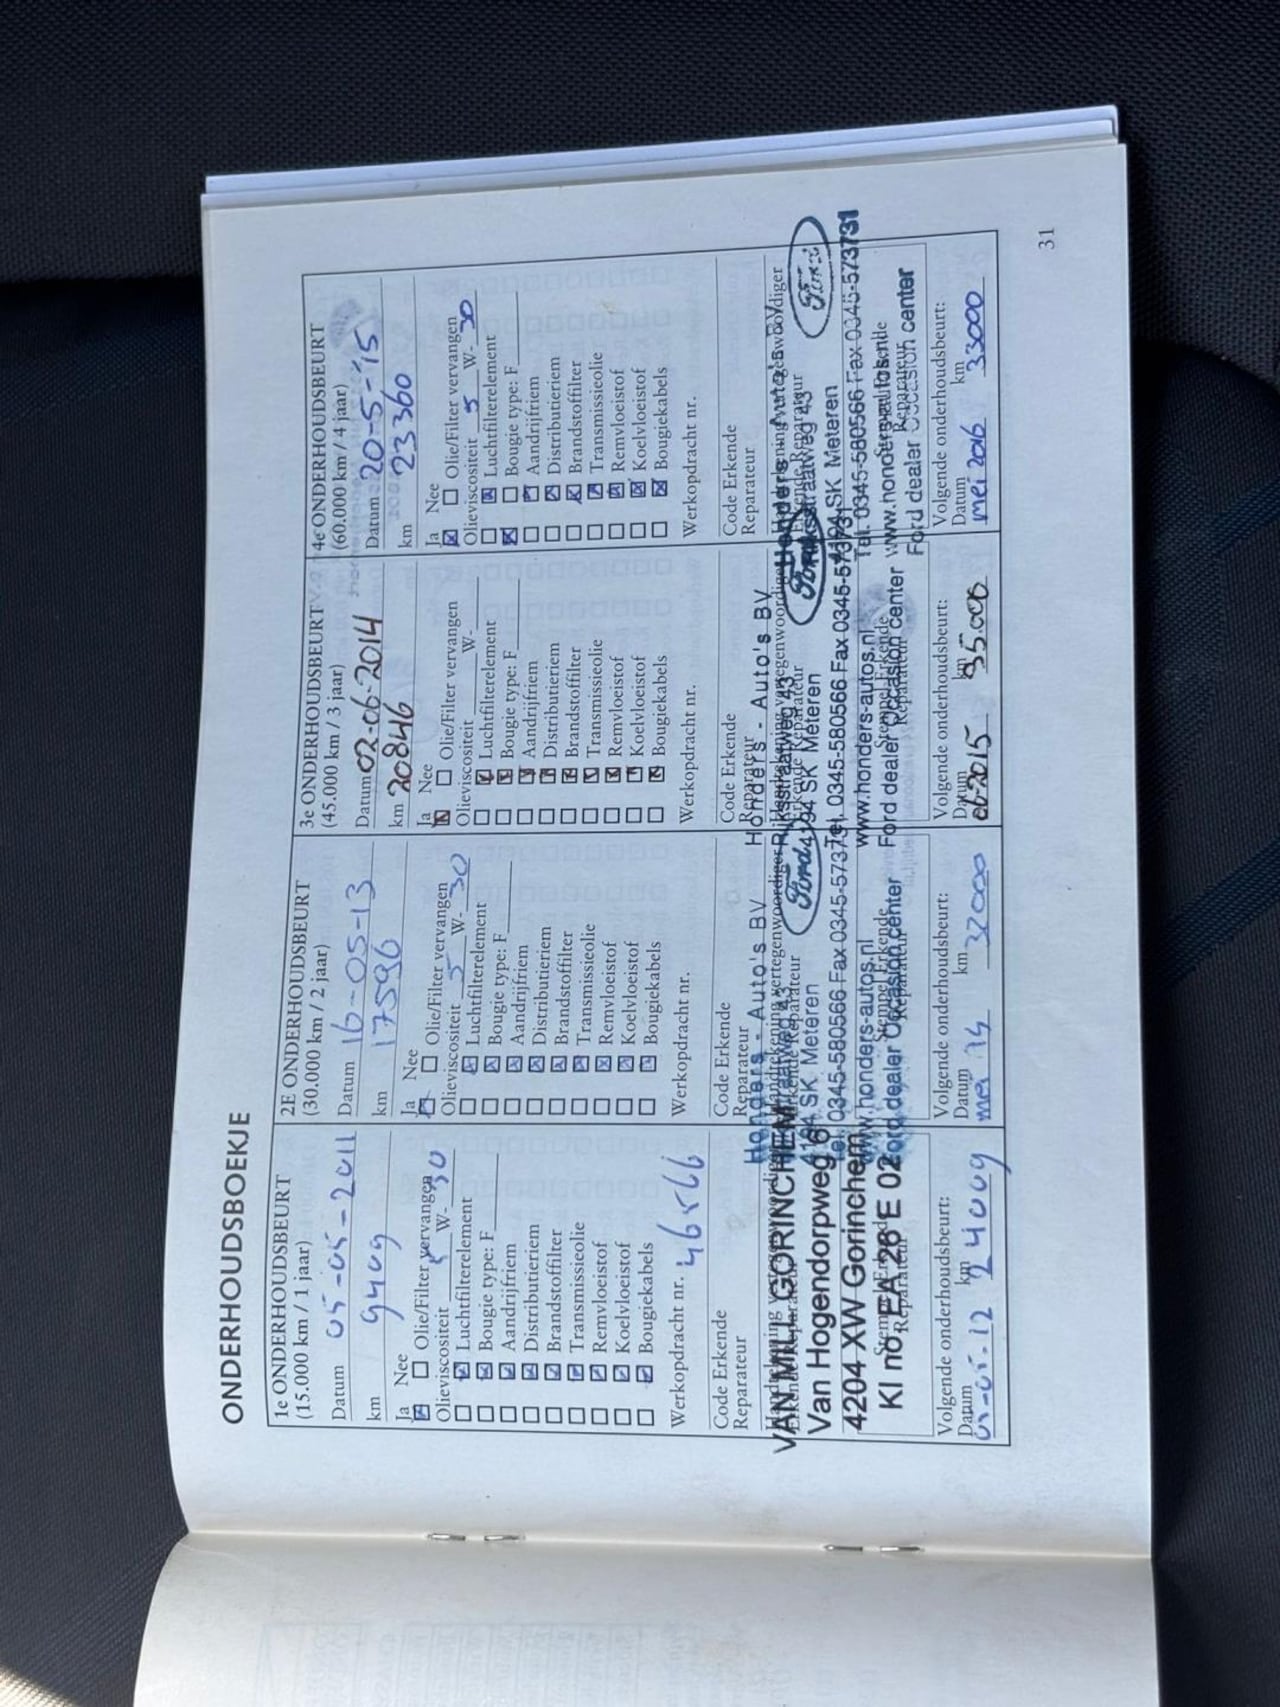 ONDERHOUDSBOEKJE
1e ONDERHOUDSBEURT
(15.000 km / 1 jaar)
Datum 05-05-2011
km 9409
Ja Nee
Olie/Filter vervangen
Olieviscositeit 5 W- 30
Luchtfilterelement
Bougie type: F
Aandrijfriem
Distributieriem
Brandstoffilter
Transmissieolie
Remvloeistof
Koelvloeistof
Bougiekabels
Werkopdracht nr.
Code Erkende
Reparateur
VAN MILL GORINCHEM
Van Hogendorpweg 6
4204 XW Gorinchem
KI no. FA 26 E 02
Volgende onderhoudsbeurt:
Datum km
05-05-12 24009
2E ONDERHOUDSBEURT
(30.000 km / 2 jaar)
Datum 16-05-13
km 17596
Ja Nee
Olie/Filter vervangen
Olieviscositeit 5 W- 30
Luchtfilterelement
Bougie type: F
Aandrijfriem
Distributieriem
Brandstoffilter
Transmissieolie
Remvloeistof
Koelvloeistof
Bougiekabels
Werkopdracht nr.
Code Erkende
Reparateur
Honders - Auto's BV
Ford
4194 SK Meteren
Tel. 0345-580566 Fax 0345-573731
www.honders-autos.nl
Ford dealer Occasion center
Volgende onderhoudsbeurt:
Datum km
mei 14 32000
3e ONDERHOUDSBEURT
(45.000 km / 3 jaar)
Datum 02-06-2014
km 20846
Ja Nee
Olie/Filter vervangen
Olieviscositeit W-
Luchtfilterelement
Bougie type: F
Aandrijfriem
Distributieriem
Brandstoffilter
Transmissieolie
Remvloeistof
Koelvloeistof
Bougiekabels
Werkopdracht nr.
Code Erkende
Reparateur
Honders - Auto's BV
Rijksstraatweg 43
Ford
4194 SK Meteren
Tel. 0345-580566 Fax 0345-573731
www.honders-autos.nl
Ford dealer Occasion center
Volgende onderhoudsbeurt:
Datum km
06-2015 35000
4e ONDERHOUDSBEURT
(60.000 km / 4 jaar)
Datum 20-5-'15
km 23360
Ja Nee
Olie/Filter vervangen
Olieviscositeit 5 W- 30
Luchtfilterelement
Bougie type: F
Aandrijfriem
Distributieriem
Brandstoffilter
Transmissieolie
Remvloeistof
Koelvloeistof
Bougiekabels
Werkopdracht nr.
Code Erkende
Reparateur
Honders - Auto's BV
Rijksstraatweg 43
Ford
4194 SK Meteren
Tel. 0345-580566 Fax 0345-573731
www.honders-autos.nl
Ford dealer Occasion center
Volgende onderhoudsbeurt:
Datum km
mei 2016 33000
31